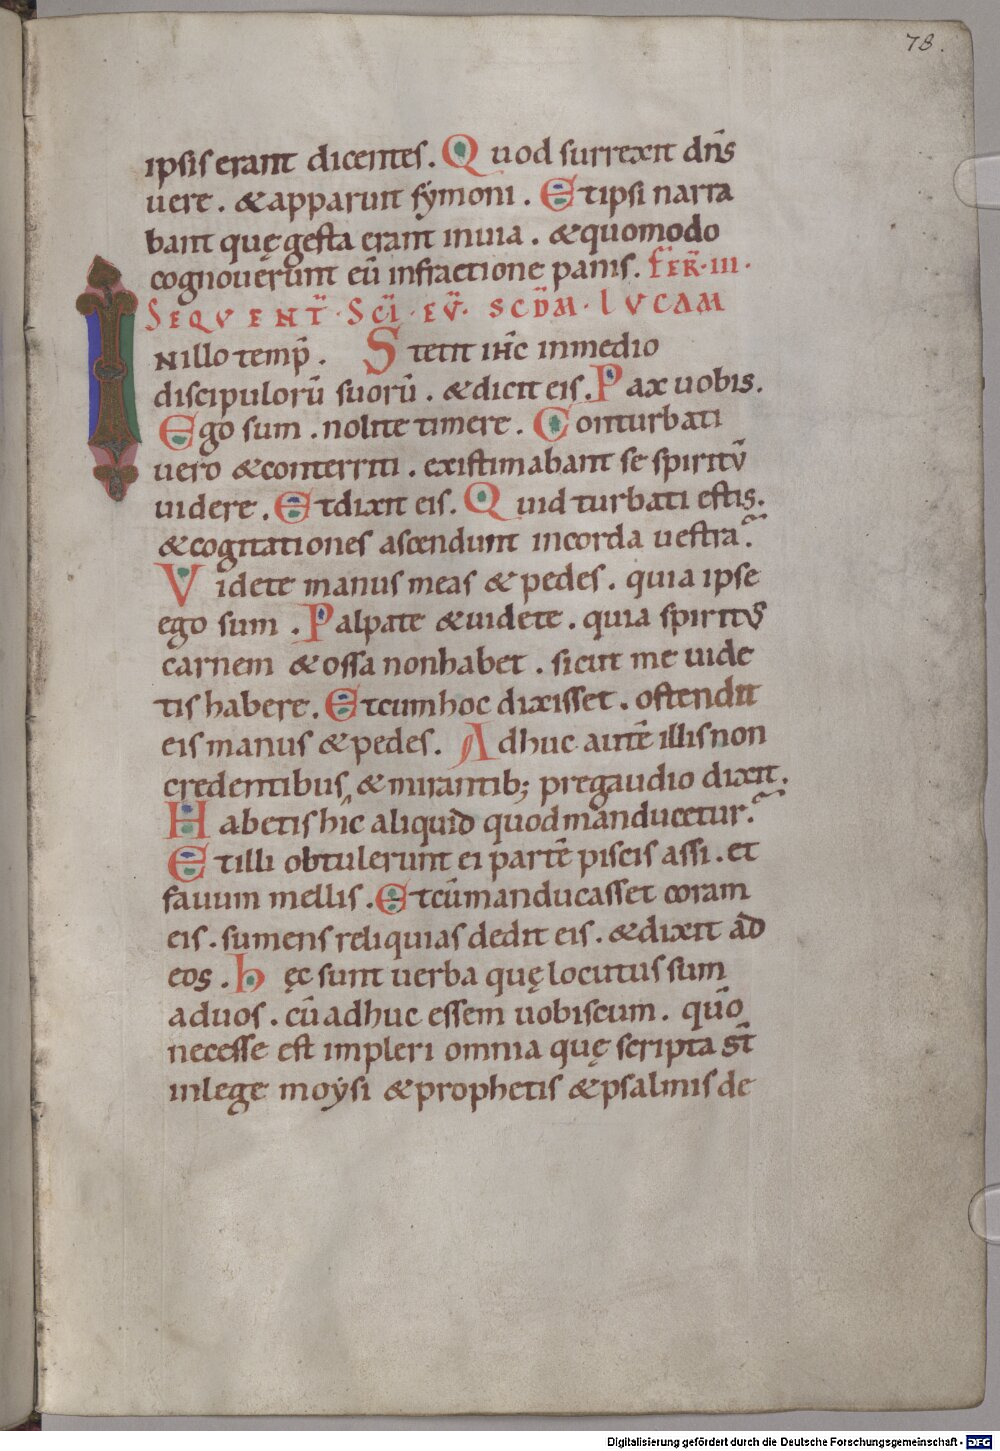 78.
ipsis erant dicentes. Quod surrexit dn̄s
uere. & apparuit sẏmoni. Et ipsi narra
bant quę gesta erant inuia. & quomodo
cognouerunt eū infractione panis. FER̄·III·
SEQVENT̄·SC̄I·EV̄·SCD̄M·LVCAM
INillo temp̄. Stetit ih̄c inmedio
discipulorū suorū. & dicit eis. Pax uobis.
Ego sum. nolite timere. Conturbati
uero & conterriti. existimabant se spiritū
uidere. Et dixit eis. Quid turbati estis.
& cogitationes ascendunt incorda uestra.
Videte manus meas & pedes. quia ipse
ego sum. Palpate & uidete. quia spiritus
carnem & ossa non habet. sicut me uide
tis habere. Et cum hoc dixisset. ostendit
eis manus & pedes. Adhuc autē illis non
credentibus, & mirantib; pregaudio dixit.
Habetis hic aliquid quod manducetur.
Et illi obtulerunt ei partē piscis assi. et
fauum mellis. Et cū manducasset coram
eis. sumens reliquias dedit eis. & dixit ad
eos. hęc sunt uerba quę locutus sum
aduos. cū adhuc essem uobiscum. quō
necesse est impleri omnia quę scripta st̄
inlege moẏsi & prophetis & psalmis de
Digitalisierung gefördert durch die Deutsche Forschungsgemeinschaft - DFG